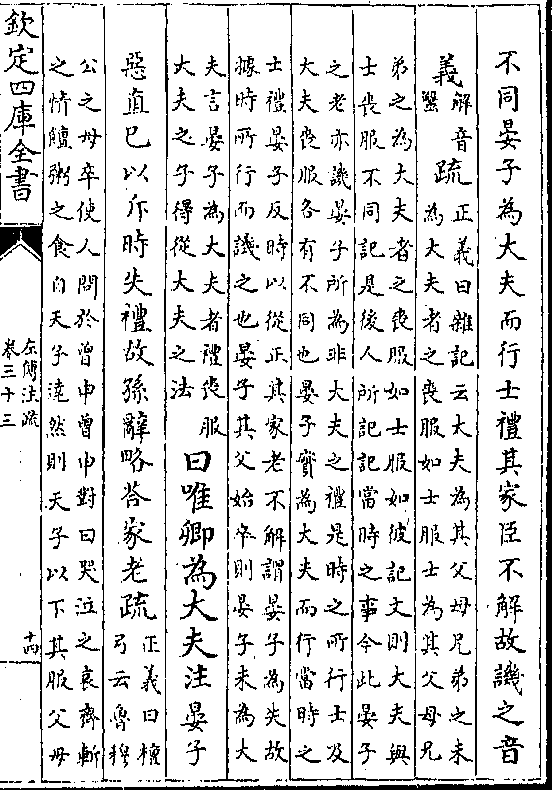 不同晏子為大夫而行士禮其家臣不解故譏之音
義
解音
蟹
疏
正義曰雜記云大夫為其父母兄弟之未
為大夫者之喪服如士服士為其父母兄
弟之為大夫者之喪服如士服如彼記文則大夫與
士喪服不同記是後人所記記當時之事今此晏子
之老亦譏晏子所為非大夫之禮是時之所行士及
大夫喪服各有不同也晏子實為大夫而行當時之
士禮晏子反時以從正其家老不解謂晏子為失故
據時所行而譏之也晏子其父始卒則晏子未為大
夫言晏子為大夫者禮喪服
大夫之子得從大夫之法
曰唯卿為大夫注晏子
惡直已以斥時失禮故孫辭略荅家老疏
正義曰檀
弓云魯穆
公之母卒使人問於曾申曾申對曰哭泣之哀齊斬
之情饘粥之食自天子達然則天子以下其服父母
欽定四庫全書
左傳注疏
卷三十三
十四